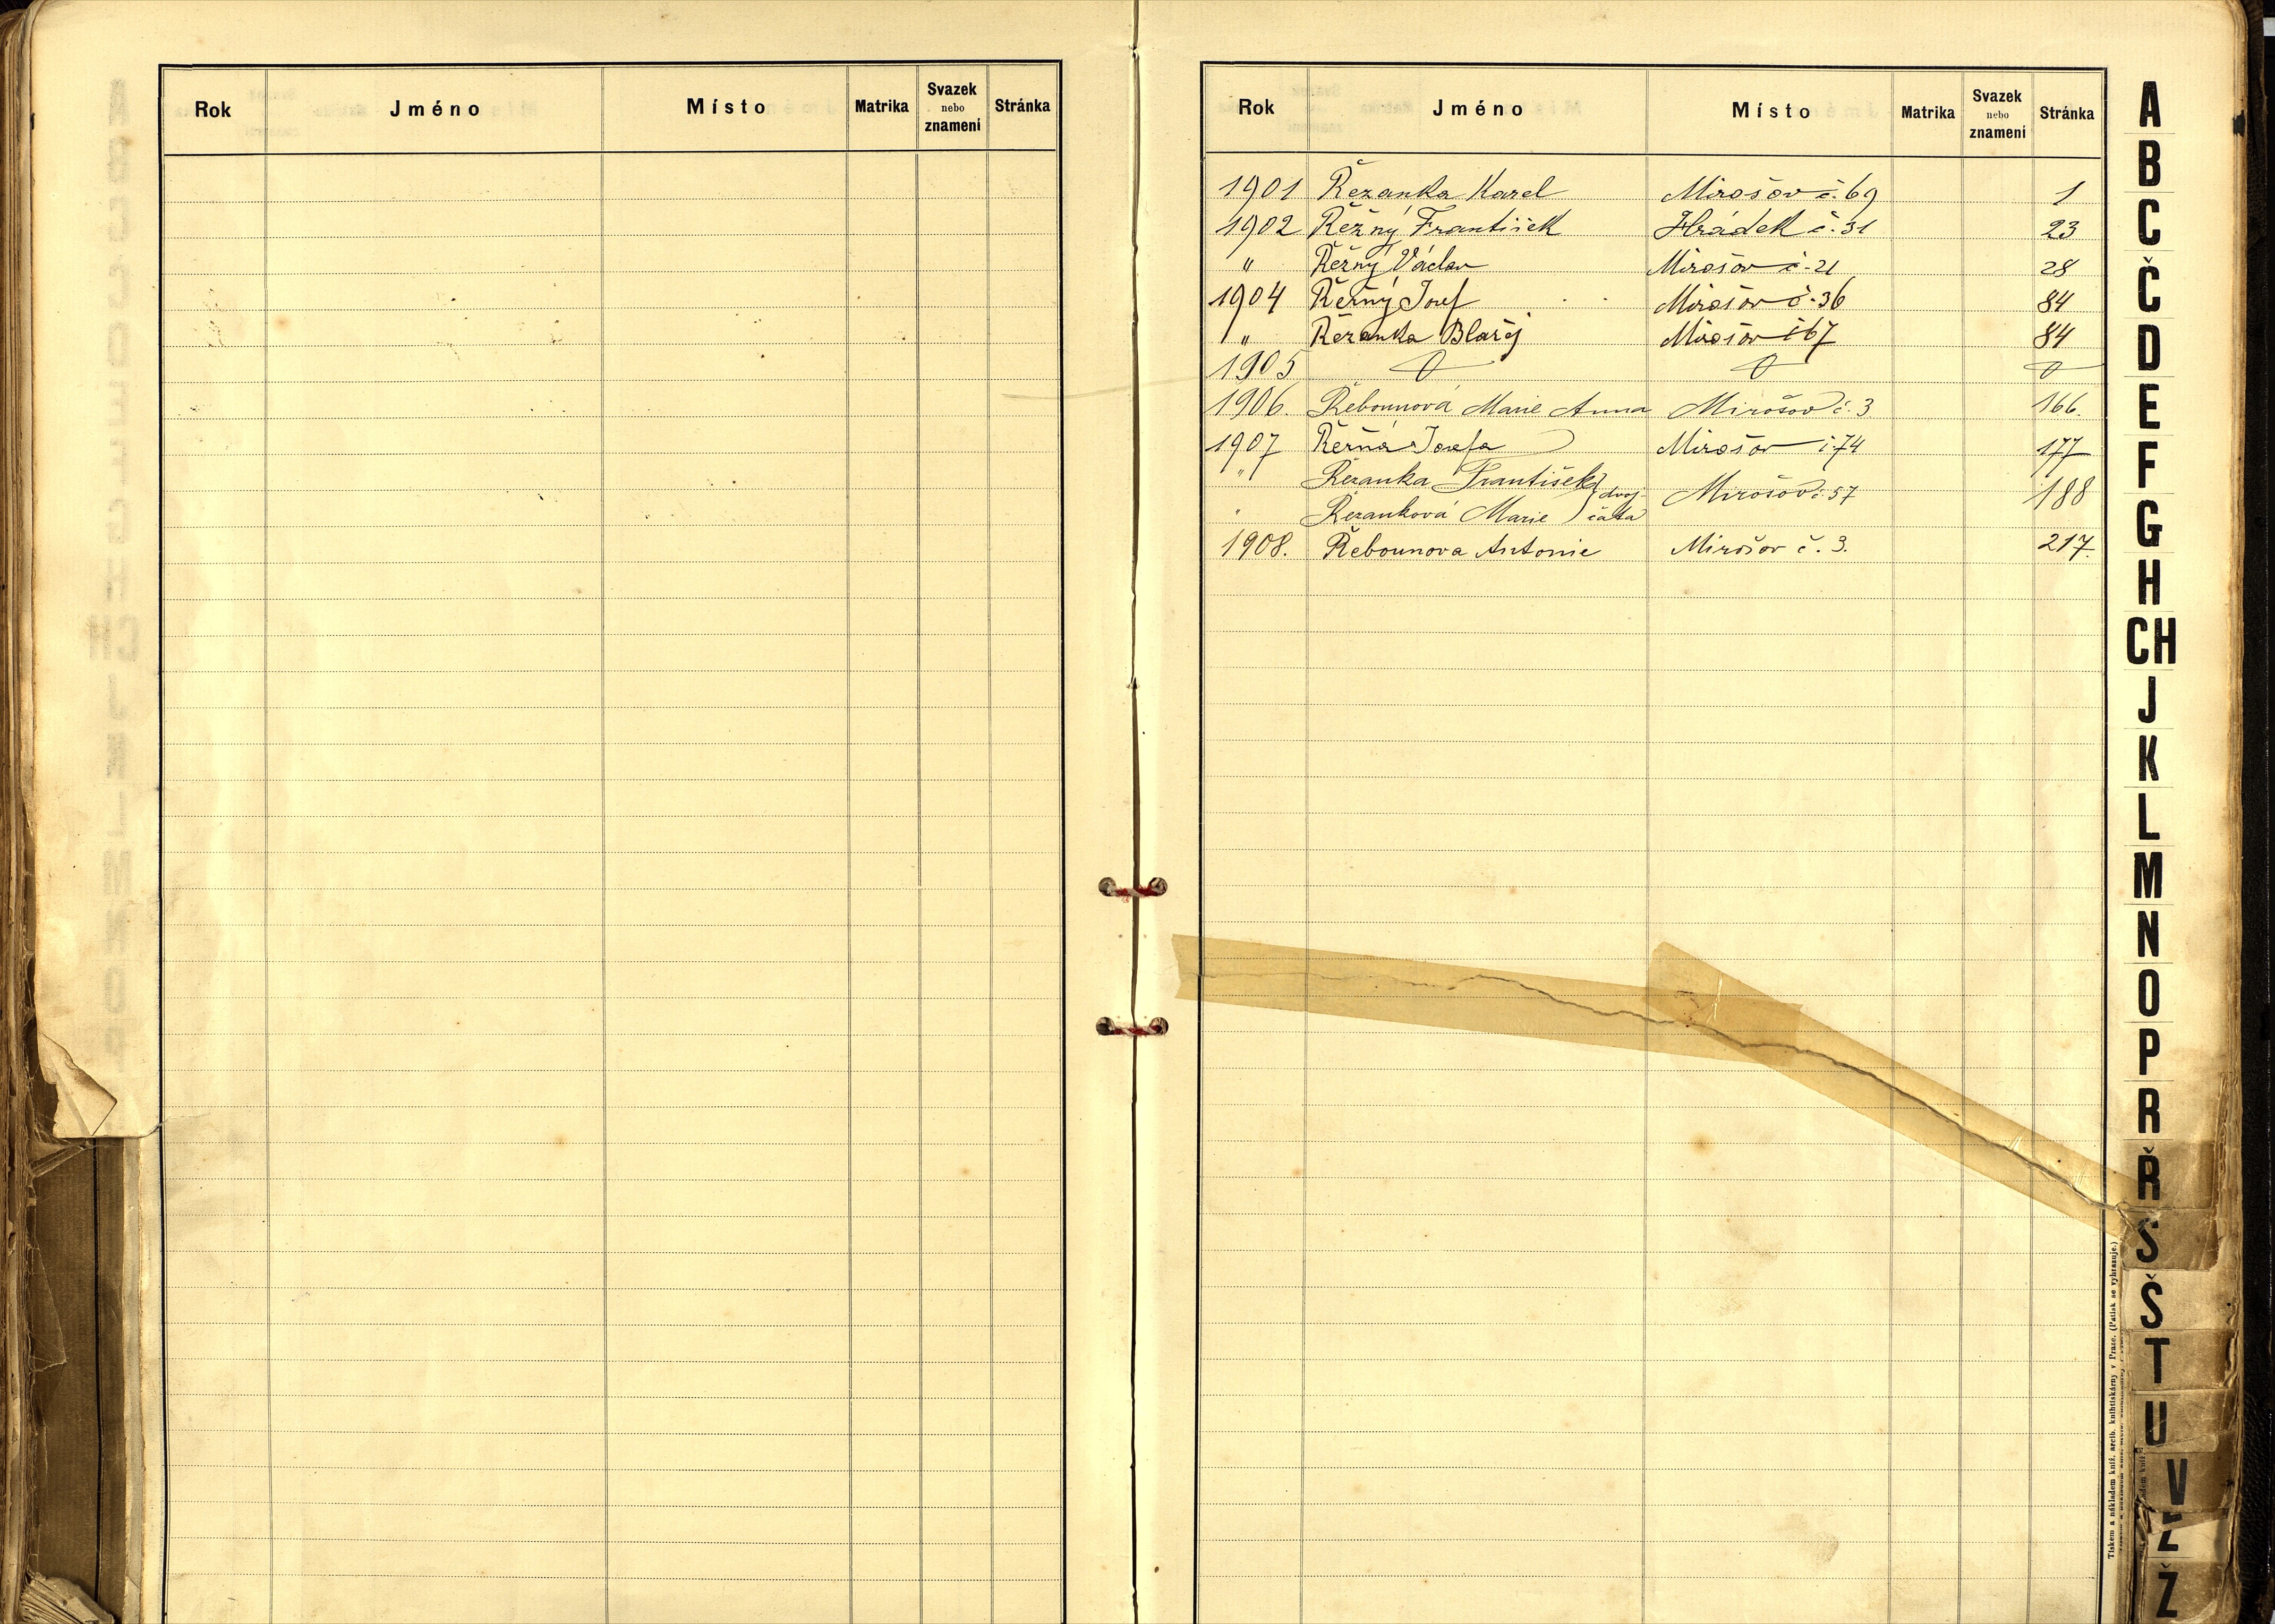 Rok Jméno Místo Matrika Svazek nebo znamení Stránka
Rok Jméno Místo Matrika Svazek nebo znamení Stránka
1901 Řezanka Karel Mirošov č. 69 1
1902 Řežný František Hrádek č. 31 23
" Řežný Václav Mirošov č. 21 28
1904 Řežný Josef Mirošov č. 36 84
" Řezanka Blažej Mirošov č 67 84
1905 0 0 0
1906. Řebounová Marie Anna Mirošov č. 3 166.
1907 Řežná Josefa Mirošov č. 74 177
" Řezanka František } dvoj- Mirošov č. 57 188
" Řezanková Marie } čata
1908. Řebounova Antonie Mirošov č. 3. 217.
A
B
C
Č
D
E
F
G
H
CH
J
K
L
M
N
O
P
R
Ř
S
Š
T
U
V
Z
Ž
Tiskem a nákladem kníž. arcib. knihtiskárny v Praze. (Patisk se vyhrazuje.)